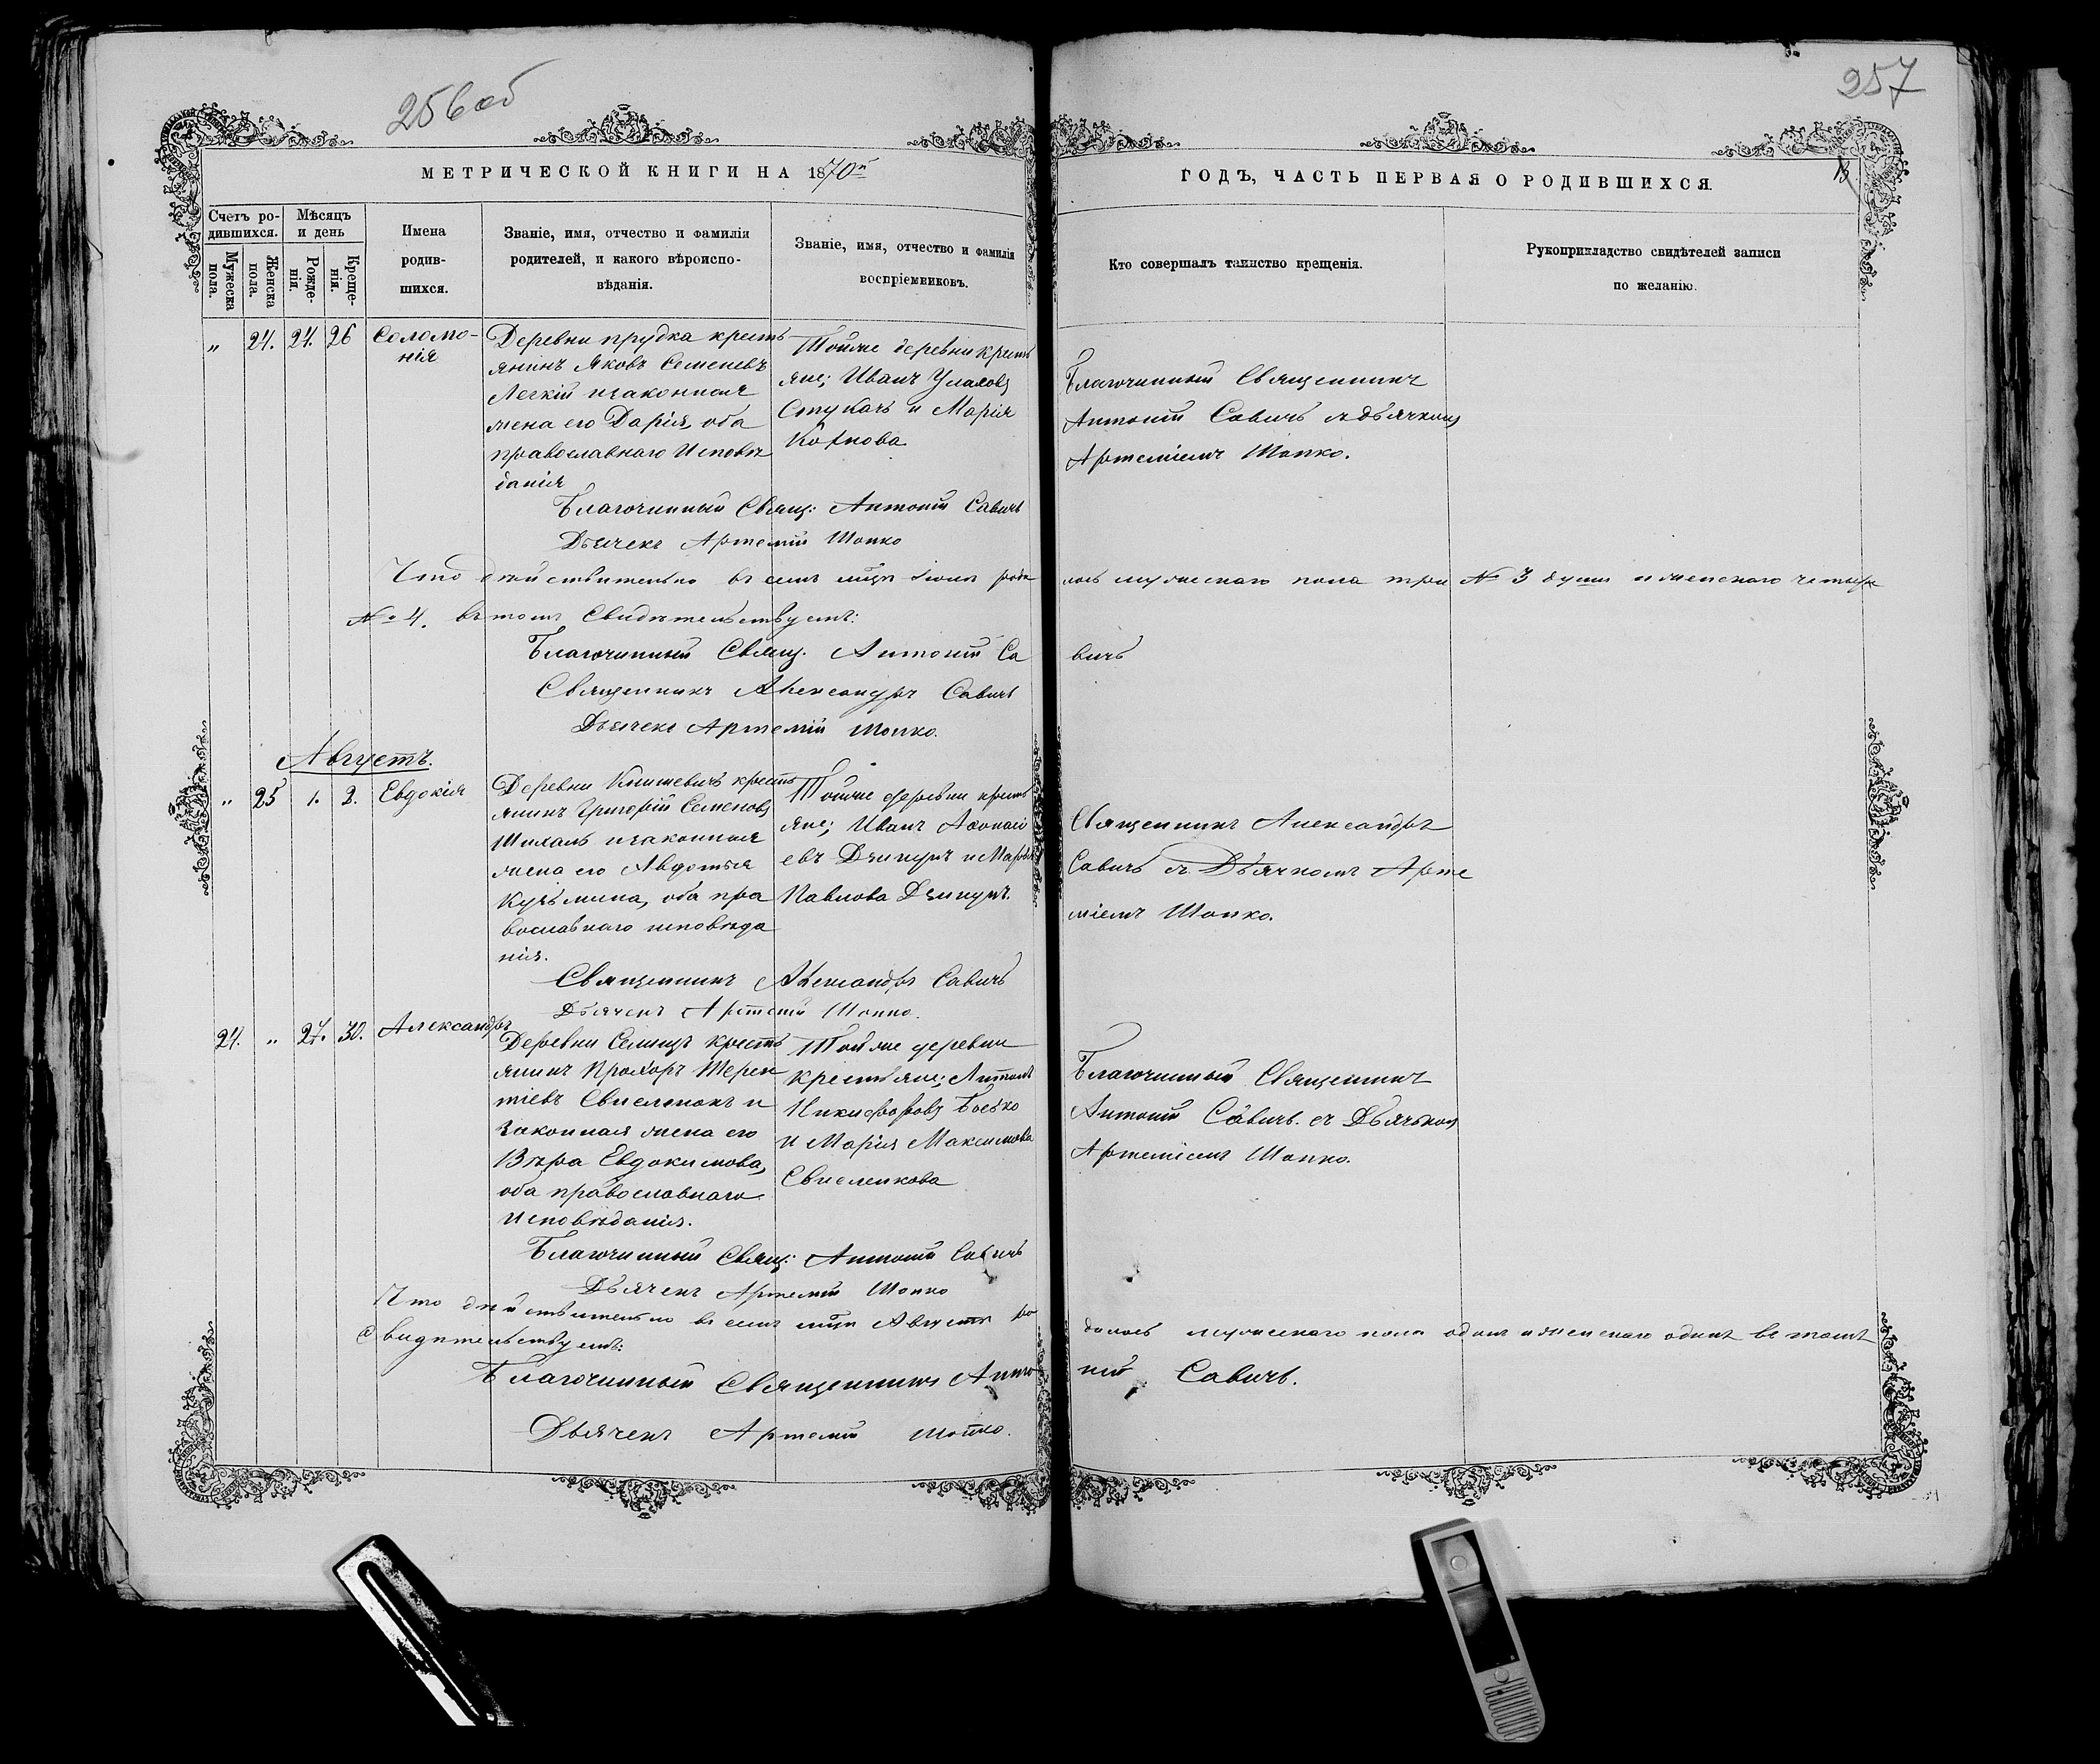 256 об
257
13
МЕТРИЧЕСКОЙ КНИГИ НА 1870й
ГОДЪ, ЧАСТЬ ПЕРВАЯ О РОДИВШИХСЯ.
Счетъ ро-
дившихся.
Мѣсяцъ
и день
Мужеска
пола.
Женска
пола.
Рожде-
нія.
Креще-
нія.
Имена
родив-
шихся.
Званіе, имя, отчество и фамилія
родителей, и какого вѣроиспо-
вѣданія.
Званіе, имя, отчество и фамилія
воспріемниковъ.
Кто совершалъ таинство крещенія.
Рукоприкладство свидѣтелей записи
по желанію.
„ 24. 24. 26 Соломо-
нія
Деревни прудка кресть
янинъ Яковъ Семеневъ
Легкій изаконная
жена его Дарія, оба
православнаго Исповѣ
данія
Тойже деревни кресть
яне; Иванъ
Стукачъ и Марія
Благочинный Священникъ
Антоній Савичъ съ дьячкомъ
Артеміемъ Шопко.
Благочинный Свящ: Антоній Савичъ
Дьячекъ Артемій Шопко
Что дѣйствительно въ семъ мцѣ роди
лось мужескаго пола три № 3 души и женскаго четыре
№ 4. въ томъ Свидѣтельствуемъ:
Благочинный Свящ. Антоній Са
вичъ
Священникъ Александръ Савичъ
Дьячекъ Артемій Шопко.
Августъ.
„ 25 1. 2. Евдокія
Деревни кресть
янинъ Григорій Семеновъ
изаконная
жена его Авдотья
Кузьмина, оба пра
вославнаго исповѣда
нія.
Тойже деревни кресть
яне; Иванъ Афонасі
евъ и Марья
Павлова
Священникъ Александръ
Савичъ съ Дьячкомъ Арте
міемъ Шопко.
Священникъ Александръ Савичъ
Дьячекъ Артемій Шопко.
24. „ 27. 30. Александръ
Деревни Селищъ кресть
янинъ Прохоръ Терен
тіевъ и
законная жена его
Вѣра Евдокимова,
оба православнаго
Исповѣданія.
Тойже деревни
крестьяне; Антонъ
Никифоровъ
и Марія Максимова
Благочинный Священникъ
Антоній Савичъ. съ Дьячькомъ
Артеміемъ Шопко.
Благочинный Свящ: Антоній Савичъ
Дьячекъ Артемій Шопко
Что дѣйствительно въ семъ мцѣ Августѣ ро
дилось мужескаго пола одинъ и женскаго одинъ въ томъ
Свидѣтельствуемъ:
Благочинный Священникъ Анто
ній Савичъ.
Дьячекъ Артемій Шопко.